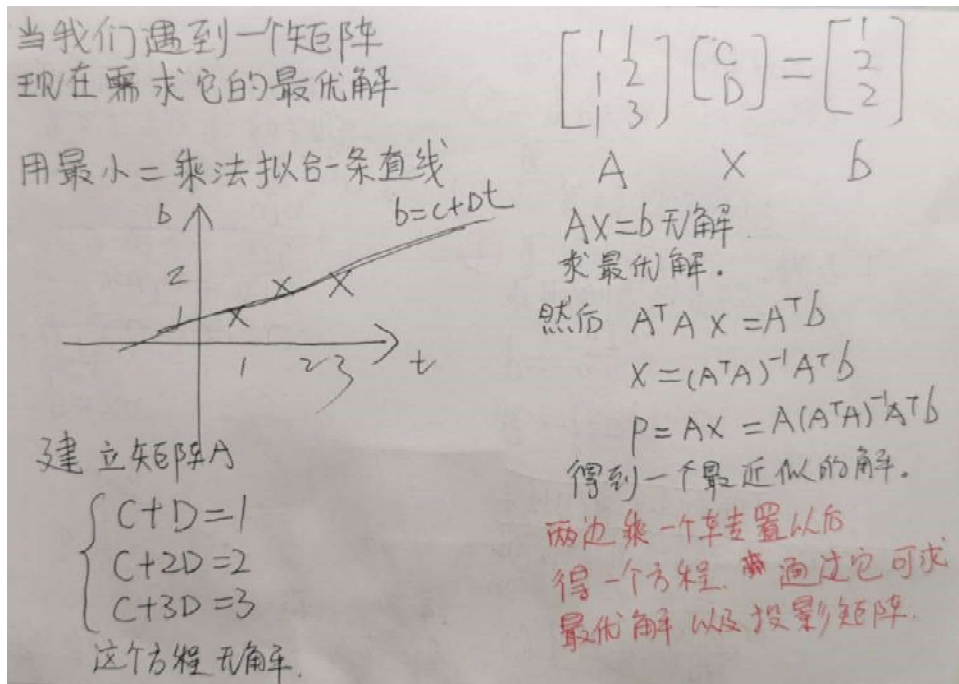 当我们遇到一个矩阵
现在需求它的最优解
用最小二乘法拟合一条直线
b
b=C+Dt
2
1
1 2 3
t
建立矩阵A
C+D=1
C+2D=2
C+3D=3
这个方程无解.
[1 1
1 2
1 3] [C
D] = [1
2
2]
A X b
AX=b无解
求最优解.
然后 AᵀA X = Aᵀb
X = (AᵀA)⁻¹Aᵀb
P = AX = A(AᵀA)⁻¹Aᵀb
得到一个最近似的解.
两边乘一个转置以后
得一个方程. 通过它可求
最优解以及投影矩阵.